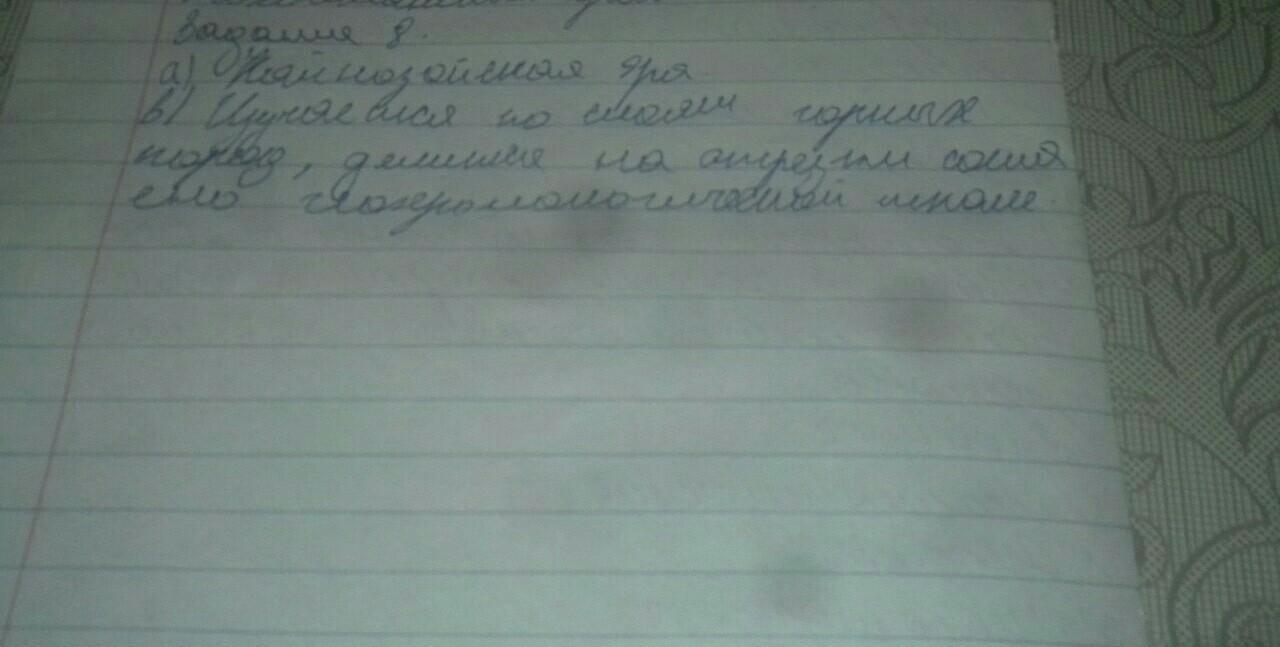 Задание 8.
а) Кайнозойская эра
в) Изучается по слоям горных
пород, делится на отрезки согла
сно геохронологической шкале.